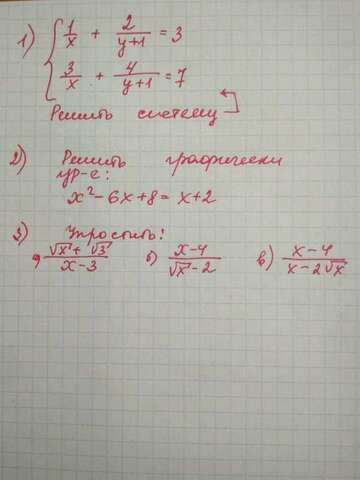 1) { 1/x + 2/(y+1) = 3
3/x + 4/(y+1) = 7
Решить систему
2) Решить графически
ур-е:
x² - 6x + 8 = x + 2
3) Упростить!
а) (√x + √3)/(x - 3) б) (x - 4)/(√x - 2) в) (x - 4)/(x - 2√x)